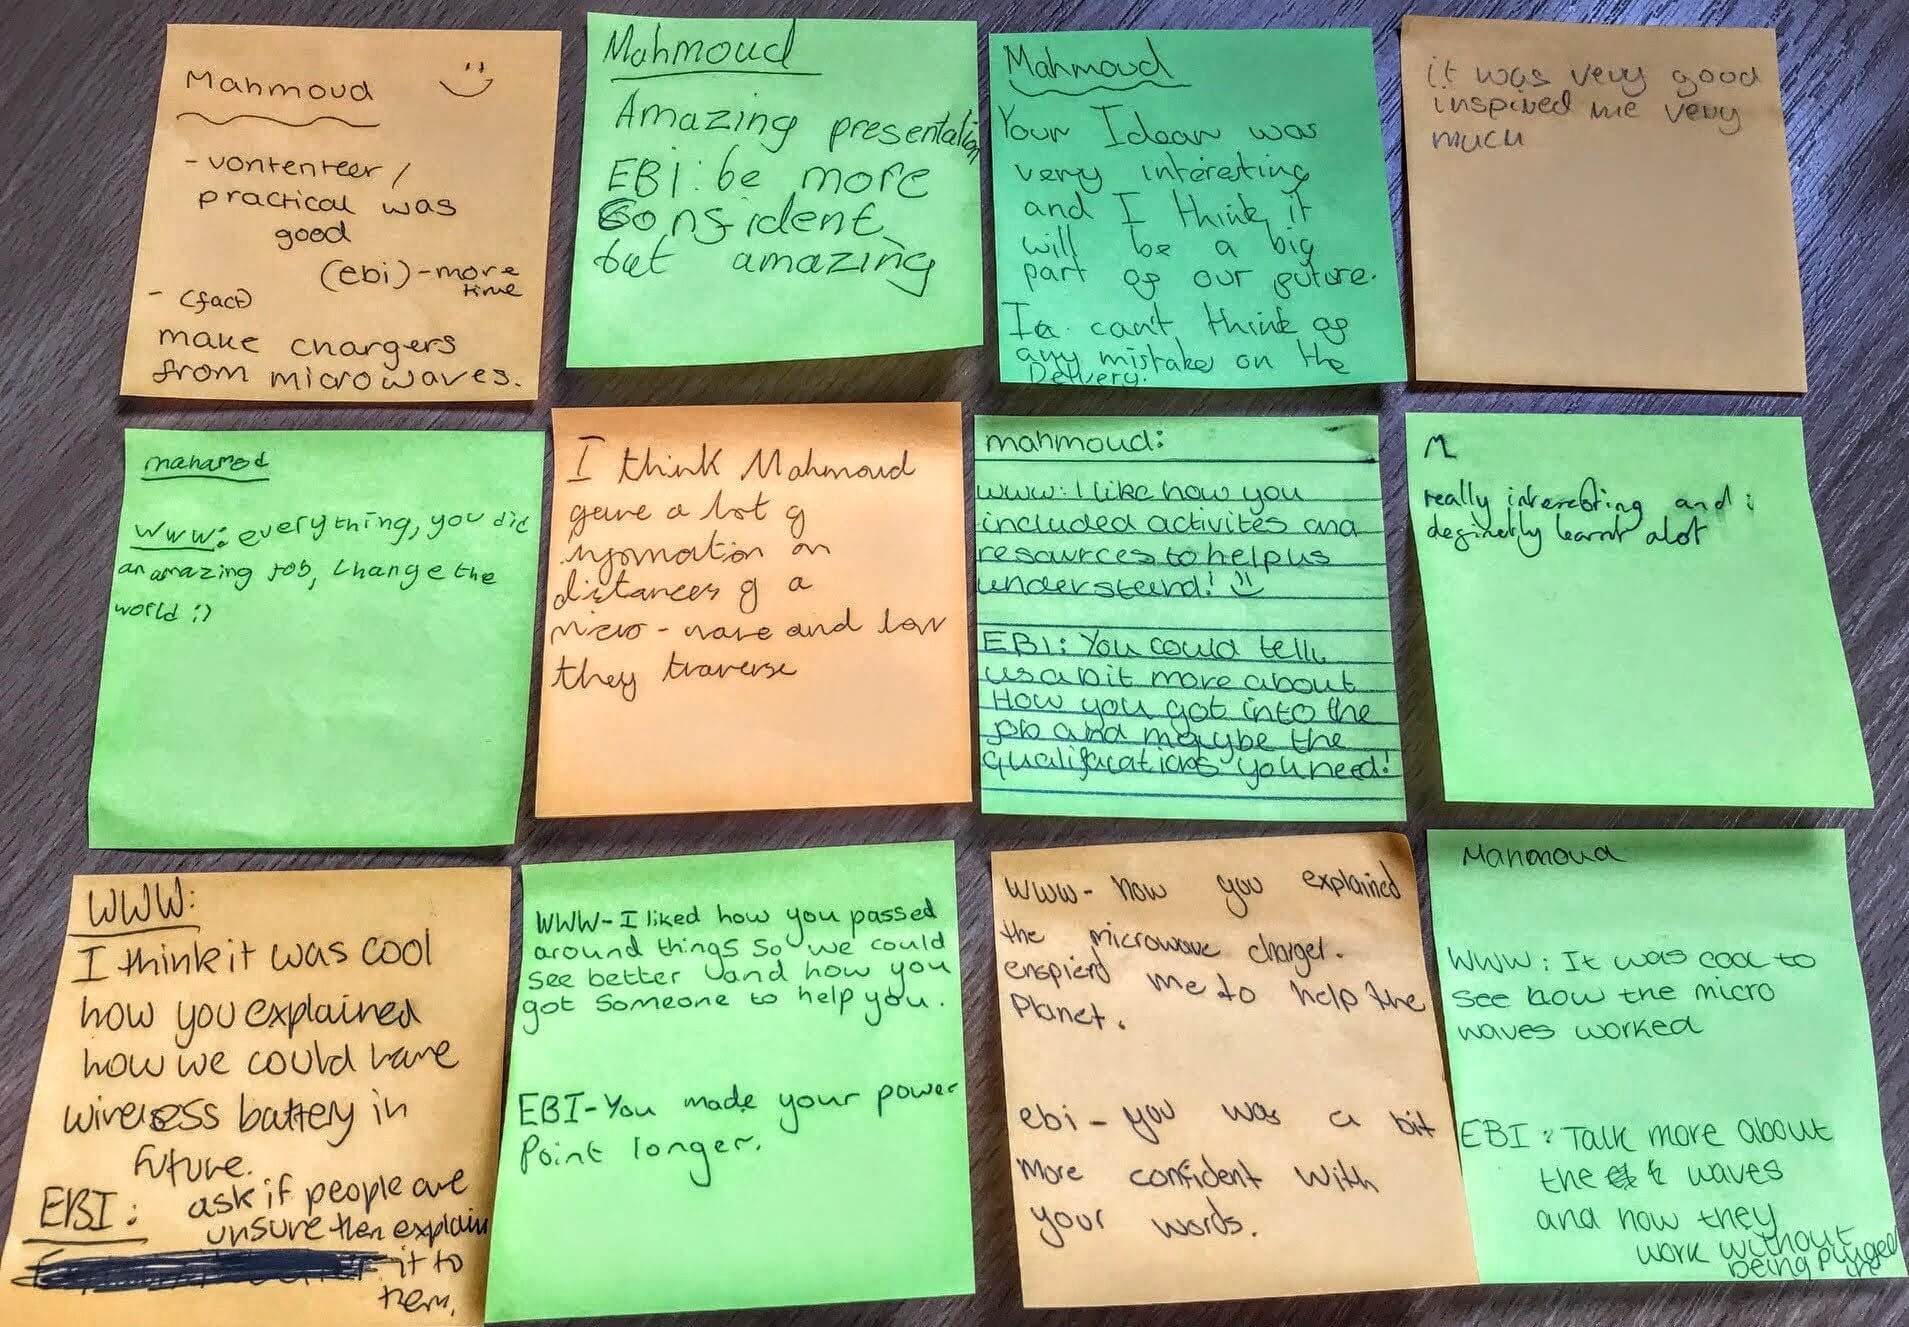 Mahmoud
- vontenteer /
practical was
good
(ebi) - more
time
- (fact)
make chargers
from microwaves.
Mahmoud
Amazing presentation
EBI: be more
Consident
but amazing
Mahmoud
Your Idear was
very interesting
and I think it
will be a big
part of our future.
I can't think of
any mistakes on the
Delivery.
it was very good
inspired me very
much
mahamod
WWW: everything, you did
an amazing job, change the
world :)
I think Mahmoud
gave a lot of
information on
distances of a
micro-wave and how
they traverse
mahmoud:
WWW: I like how you
included activites and
resources to help us
understand! :)
EBI: You could tell
us a bit more about
How you got into the
job and maybe the
qualifacations you need!
M
really interesting and i
definerly learnt alot
WWW:
I think it was cool
how you explained
how we could have
wireless battery in
future.
EBI: ask if people are
unsure then explain
it to
them.
WWW- I liked how you passed
around things so we could
see better and how you
got someone to help you.
EBI- You made your power
Point longer.
WWW- how you explained
the microwave charger.
enspierd me to help the
Planet.
ebi - you was a bit
more confident with
your words.
Mahmoud
WWW: It was cool to
see how the micro
waves worked
EBI: Talk more about
the waves
and how they
work without
being pluged
in